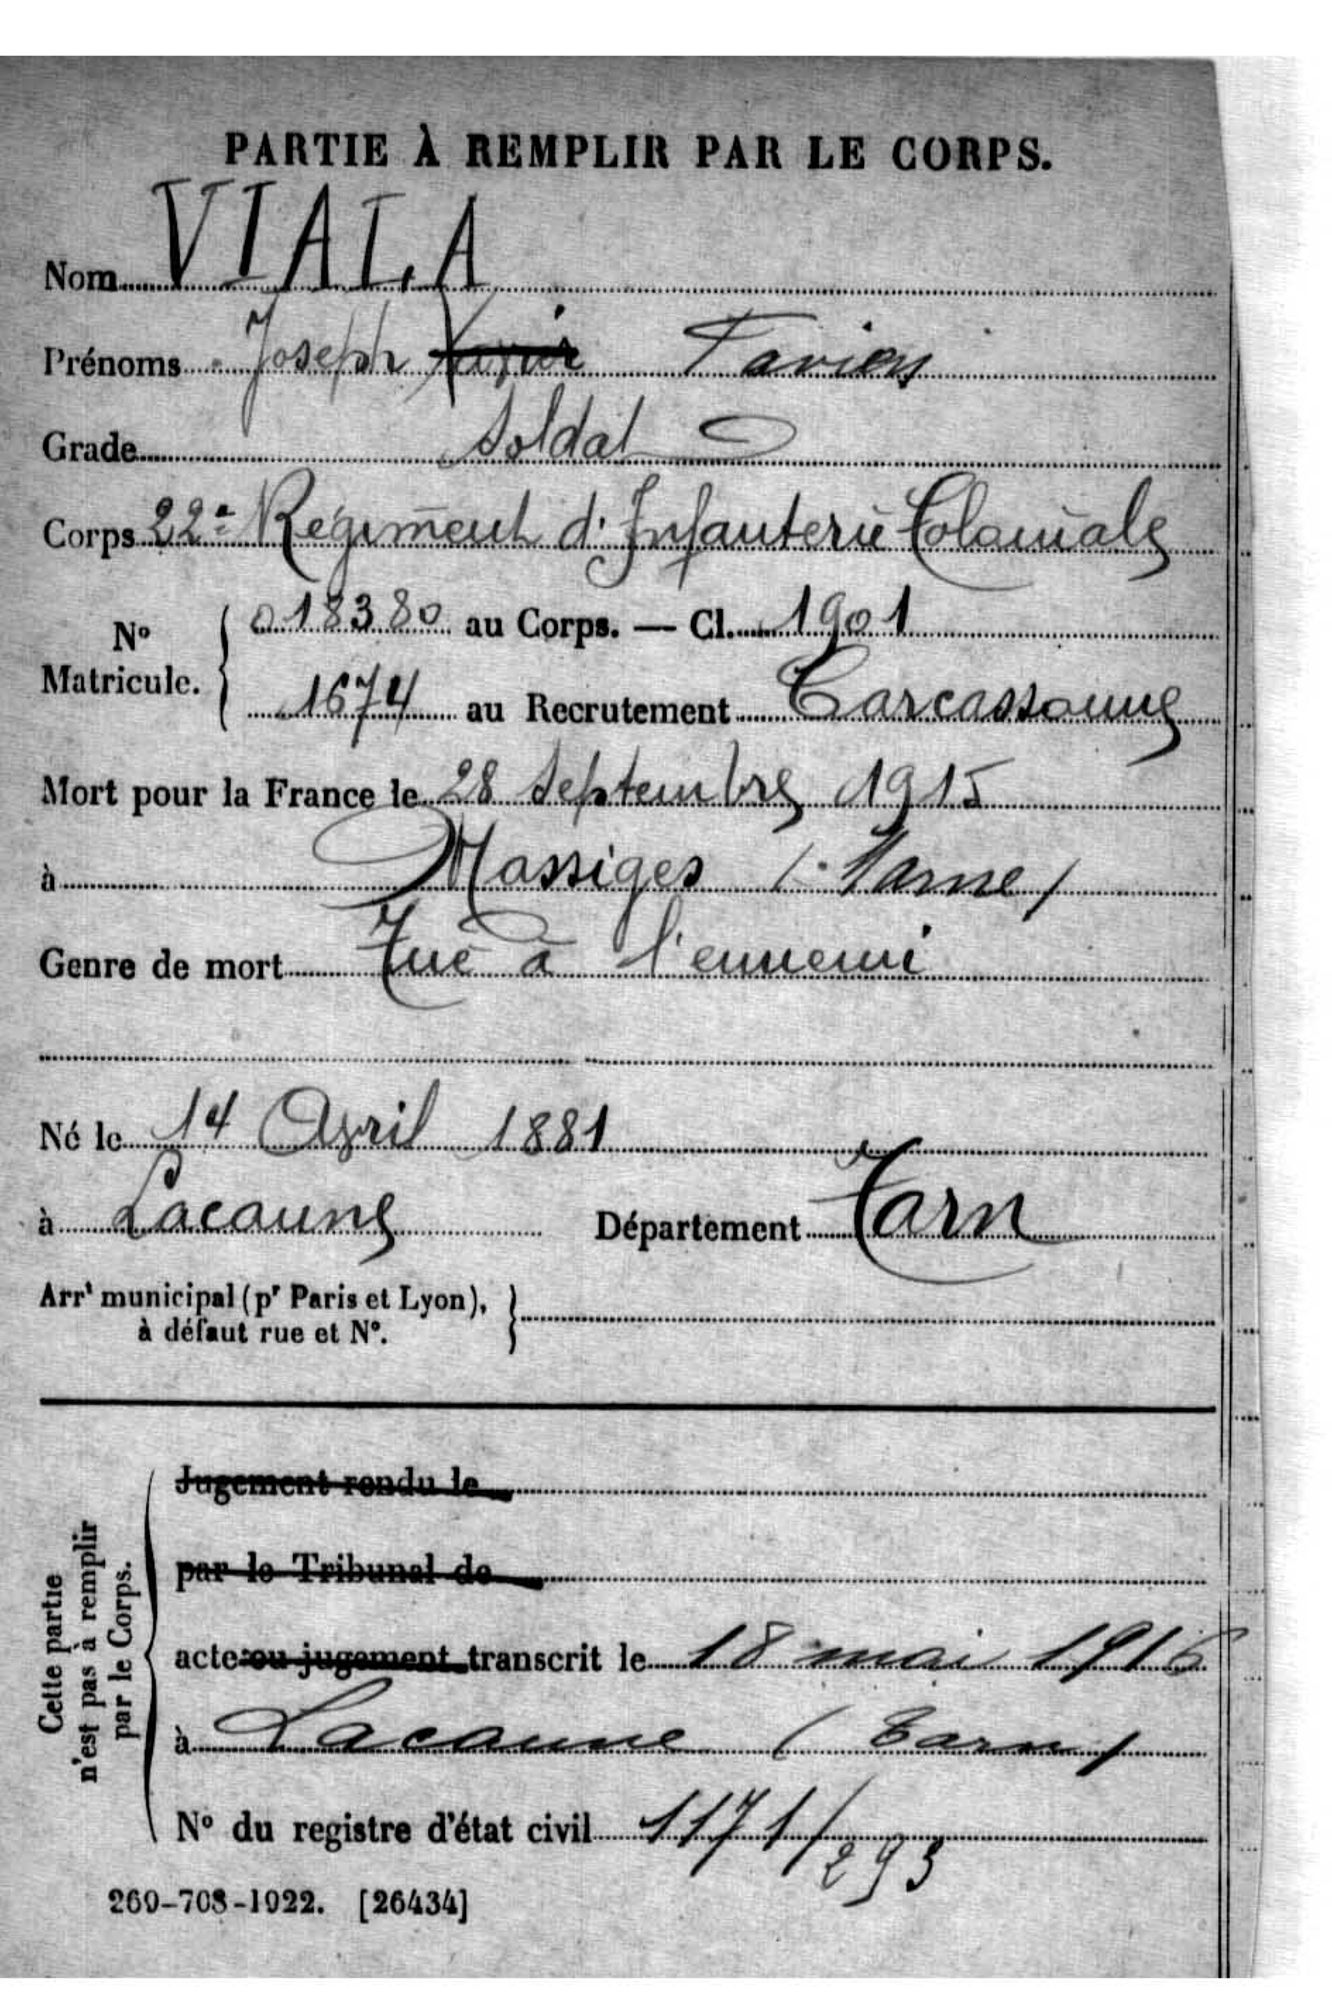 PARTIE À REMPLIR PAR LE CORPS.
Nom VIALA
Prénoms Joseph Xavier Favien
Grade Soldat
Corps 22e Régiment d'Infanterie Coloniale
No Matricule. 018380 au Corps. — Cl. 1901
1674 au Recrutement Carcassonne
Mort pour la France le 28 Septembre 1915
à Massiges (Marne)
Genre de mort Tué à l'ennemi
Né le 14 Avril 1881
à Lacaune Département Tarn
Arrt municipal (pr Paris et Lyon),
à défaut rue et No.
Cette partie n'est pas à remplir par le Corps.
Jugement rendu le
par le Tribunal de
acte ou jugement transcrit le 18 mai 1916
à Lacaune (Tarn)
No du registre d'état civil 1171/293
269-708-1922. [26434]